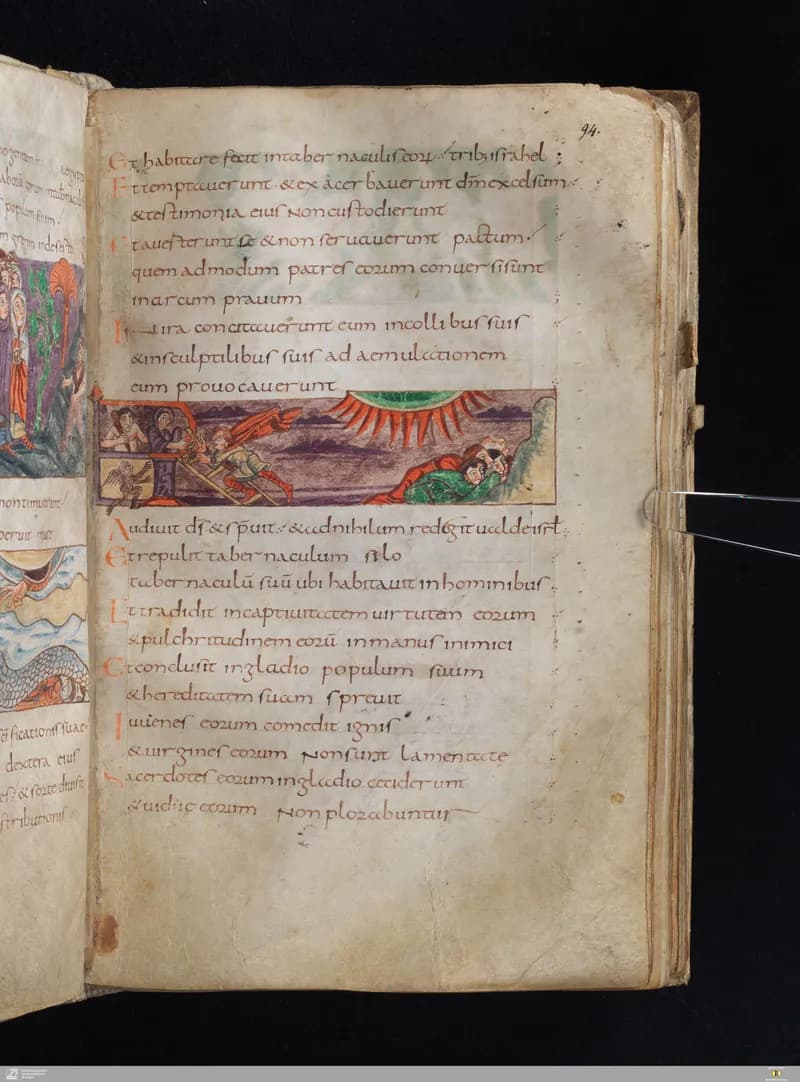 non timuerunt
dextera eius
94.
Et habitare fecit in tabernaculis eorum tribus israhel
Et temptauerunt & exacerbauerunt dm excelsum
& testimonia eius non custodierunt
Et auerterunt se & non seruauerunt pactum
quemadmodum patres eorum conuersi sunt
in arcum prauum
In ira concitauerunt eum in collibus suis
& in sculptilibus suis ad aemulationem
eum prouocauerunt
Audiuit ds & spuit & ad nihilum redegit ualde isrl
Et repulit tabernaculum silo
tabernaculū suū ubi habitauit in hominibus
Et tradidit in captiuitatem uirtutem eorum
& pulchritudinem eorū in manus inimici
Et conclusit in gladio populum suum
& hereditatem suam spreuit
Iuuenes eorum comedit ignis
& uirgines eorum non sunt lamentate
Sacerdotes eorum in gladio ceciderunt
& uiduę eorum non plorabuntur